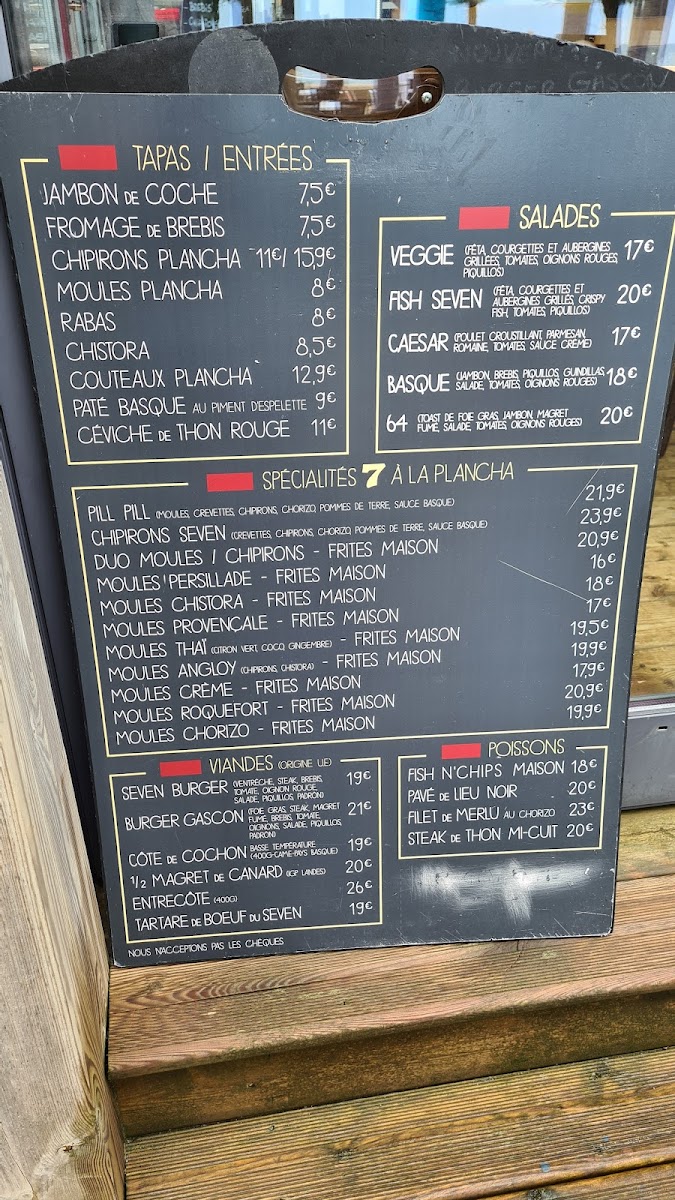 TAPAS / ENTRÉES
JAMBON DE COCHE 7,5€
FROMAGE DE BREBIS 7,5€
CHIPIRONS PLANCHA 11€/ 15,9€
MOULES PLANCHA 8€
RABAS 8€
CHISTORA 8,5€
COUTEAUX PLANCHA 12,9€
PATÉ BASQUE AU PIMENT D'ESPELETTE 9€
CÉVICHE DE THON ROUGE 11€
SALADES
VEGGIE (FÉTA, COURGETTES ET AUBERGINES 17€
GRILLÉES, TOMATES, OIGNONS ROUGES,
PIQUILLOS)
FISH SEVEN (FÉTA, COURGETTES ET 20€
AUBERGINES GRILLÉS, CRISPY
FISH, TOMATES, PIQUILLOS)
CAESAR (POULET CROUSTILLANT, PARMESAN, 17€
ROMAINE, TOMATES, SAUCE CRÈME)
BASQUE (JAMBON, BREBIS, PIQUILLOS, GUINDILLAS, 18€
SALADE, TOMATES, OIGNONS ROUGES)
64 (TOAST DE FOIE GRAS, JAMBON, MAGRET 20€
FUMÉ, SALADE, TOMATES, OIGNONS ROUGES)
SPÉCIALITÉS 7 À LA PLANCHA
PILL PILL (MOULES, CREVETTES, CHIPIRONS, CHORIZO, POMMES DE TERRE, SAUCE BASQUE) 21,9€
CHIPIRONS SEVEN (CREVETTES, CHIPIRONS, CHORIZO, POMMES DE TERRE, SAUCE BASQUE) 23,9€
DUO MOULES / CHIPIRONS - FRITES MAISON 20,9€
MOULES PERSILLADE - FRITES MAISON 16€
MOULES CHISTORA - FRITES MAISON 18€
MOULES PROVENÇALE - FRITES MAISON 17€
MOULES THAÏ (CITRON VERT, COCO, GINGEMBRE) - FRITES MAISON 19,5€
MOULES ANGLOY (CHIPIRONS, CHISTORA) - FRITES MAISON 19,9€
MOULES CRÈME - FRITES MAISON 17,9€
MOULES ROQUEFORT - FRITES MAISON 20,9€
MOULES CHORIZO - FRITES MAISON 19,9€
VIANDES (ORIGINE UE)
SEVEN BURGER (VENTRÈCHE, STEAK, BREBIS, 19€
TOMATE, OIGNON ROUGE,
SALADE, PIQUILLOS, PADRON)
BURGER GASCON (FOIE GRAS, STEAK, MAGRET 21€
FUMÉ, BREBIS, TOMATE,
OIGNONS, SALADE, PIQUILLOS,
PADRON)
CÔTE DE COCHON BASSE TEMPÉRATURE 19€
(400G-CAME-PAYS BASQUE)
1/2 MAGRET DE CANARD (IGP LANDES) 20€
ENTRECÔTE (400G) 26€
TARTARE DE BOEUF DU SEVEN 19€
POISSONS
FISH N'CHIPS MAISON 18€
PAVÉ DE LIEU NOIR 20€
FILET DE MERLU AU CHORIZO 23€
STEAK DE THON MI-CUIT 20€
NOUS N'ACCEPTONS PAS LES CHÈQUES